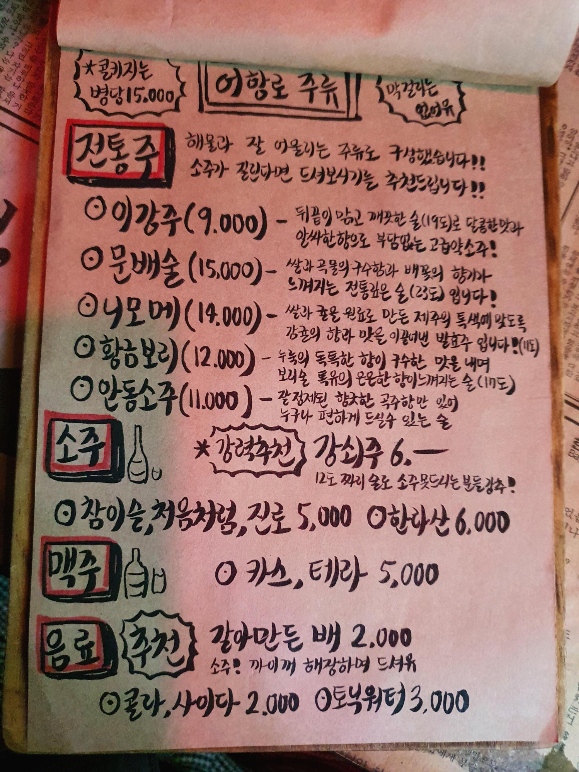 ★콜키지는
병당 15,000
어항로 주류
막걸리는
있어유
전통주
해물과 잘 어울리는 주류로 구성했습니다!!
소주가 질린다면 드셔보시기를 추천드립니다!!
이강주(9.000) - 뒤끝이 맑고 깨끗한 술(19도)로 달콤한맛과
알싸한향으로 부담없는 고급약소주!
문배술(15,000) - 쌀과 곡물의 구수함과 배꽃의 향기가
느껴지는 전통깊은 술(23도) 입니다!
니모메(14.000) - 쌀과 귤을 원료로 만든 제주의 특색에 맞도록
감귤의 향과 맛을 이끌어낸 발효주 입니다!(11도)
황금보리(12.000) - 누룩의 독특한 향이 구수한 맛을 내며
보리술 특유의 은은한 향이느껴지는 술(17도)
안동소주(11.000) - 잘 정제된 향긋한 곡주향만 있어
누구나 편하게 드실수 있는 술
소주
★강력추천 강쇠주 6.—
12도 짜리 술로 소주못드시는분들강추!
참이슬,처음처럼,진로 5,000 한라산 6,000
맥주
카스,테라 5,000
음료 추천 갈아만든 배 2.000
소주! 까이꺼 해장하며 드셔유
콜라,사이다 2.000 토닉워터 3,000